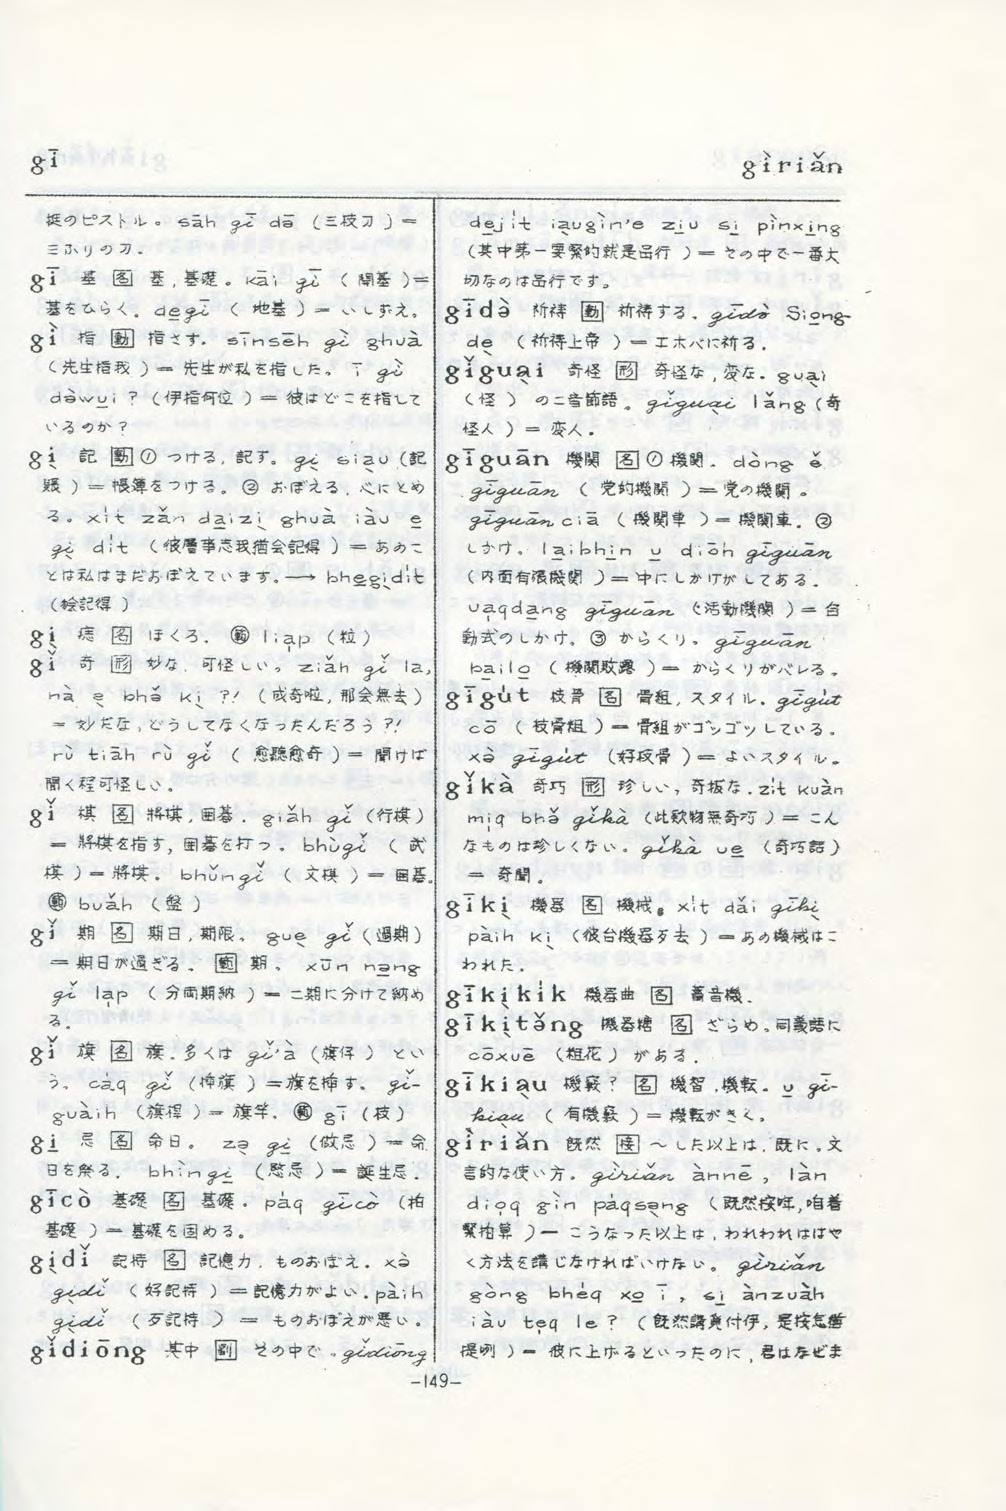 gī
gìriǎn
挺のピストル。sāh gī də̄ (三枝刀)=
三ふりの刀.
gī 基 名 基,基礎。kāi gī (開基)=
基をひらく。dēgī (地基)=いしずえ。
gì 指 動 指さす。sīnsēh gì ghuà
(先生指我)=先生が私を指した。ī gì
dəwụi? (伊指何位)=彼はどこを指して
いるのか?
gị 記 動 ①つける,記す。gị siạu (記
賬)=帳簿をつける。②おぼえる,心にとめ
る。xit zǎn dạizị ghuà iàu e̱
gị dit (彼層事志我猶会記得)=あのこ
とは私はまだおぼえています。→ bhegịdit
(袂記得)
gị 痣 名 ほくろ。範 liap (粒)
gǐ 奇 形 妙な,可怪しい。ziǎh gǐ la,
nà ẹ bhə̌ kị?! (成奇啦,那会無去)
=妙だな,どうしてなくなったんだろう?!
rù tiāh rù gǐ (愈聽愈奇)=聞けば
聞く程可怪しい。
gǐ 棋 名 将棋,囲碁。giǎh gǐ (行棋)
=将棋を指す,囲碁を打つ。bhùgǐ (武
棋)=将棋。bhǔngǐ (文棋)=囲碁。
範 buǎh (盤)
gǐ 期 名 期日,期限。gue gǐ (過期)
=期日が過ぎる。範 期。xūn nəng
gǐ lap (分両期納)=二期に分けて納め
る。
gǐ 旗 名 旗。多くは gǐ'à (旗仔) とい
う。caq gǐ (挿旗)=旗を挿す。gǐ-
guāih (旗桿)=旗竿。範 gī (枝)
gi̱ 忌 名 命日。zə gi̱ (做忌)=命
日を祭る。bhingi̱ (愍忌)=誕生忌.
gīcò 基礎 名 基礎。paq gīcò (拍
基礎)=基礎を固める。
gịdǐ 記持 名 記憶力,ものおぼえ。xə̀
gịdǐ (好記持)=記憶力がよい。pàih
gịdǐ (歹記持)=ものおぼえが悪い。
gǐdiōng 其中 副 その中で。gǐdiōng
de̱jit iạugin'e ziu̱ si̱ pìnxing
(其中第一要緊的就是品行)=その中で一番大
切なのは品行です。
gǐdə̀ 祈祷 動 祈祷する。gǐdə̀ Siọng-
dẹ (祈祷上帝)=エホバに祈る.
gǐguại 奇怪 形 奇怪な,変な。guại
(怪) の二音節語。gǐguại lǎng (奇
怪人)=変人。
gīguān 機関 名 ①機関。dòng ě
gīguān (党的機関)=党の機関。
gīguānciā (機関車)=機関車。②
しかけ。laibhin u̱ diòh gīguān
(内面有張機関)=中にしかけがしてある。
uaqdang gīguān (活動機関)=自
動式のしかけ。③からくり。gīguān
bailo̱ (機関敗露)=からくりがバレる。
gīgut 枝骨 名 骨組,スタイル。gīgut
cō (枝骨粗)=骨組がゴツゴツしている。
xə̀ gīgut (好枝骨)=よいスタイル。
gǐkà 奇巧 形 珍しい,奇抜な。zit kuàn
miq bhə̌ gǐkà (此款物無奇巧)=こん
なものは珍しくない。gǐkà ue (奇巧話)
=奇聞。
gīkị 機器 名 機械。xit dǎi gīkị
pàih kị (彼台機器歹去)=あの機械はこ
われた。
gīkịkik 機器曲 名 蓄音機.
gīkịtə̌ng 機器糖 名 ざらめ。同義語に
cōxuē (粗花) がある。
gīkiạu 機竅? 名 機智,機転。u̱ gī-
kiạu (有機竅)=機転がきく。
gìriǎn 既然 接 〜した以上は,既に。文
言的な使い方。gìriǎn ànnē, làn
dioq gìn pàqsəng (既然按呢,咱着
緊拍算)=こうなった以上は,われわれははや
く方法を講じなければいけない。gìriǎn
gòng bhèq xo̱ i, si̱ ànzuàh
iàu te̱q le? (既然講覓付伊,是按怎猶
提咧)=彼に上げるといったのに,君はなぜま
-149-